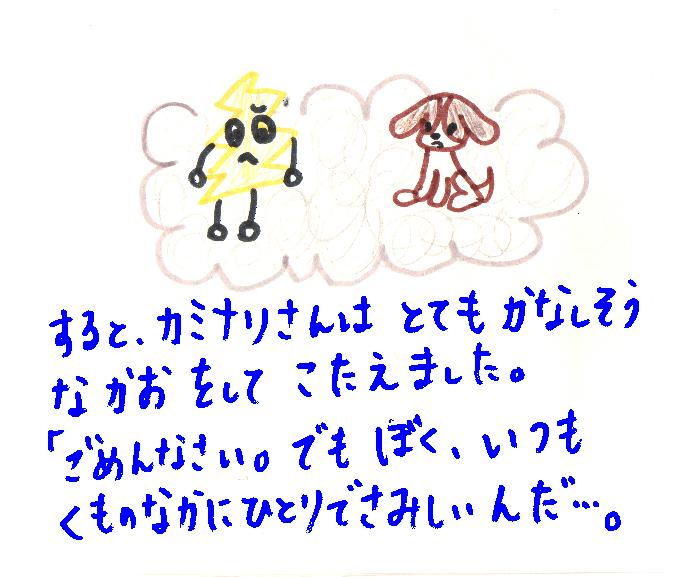 すると、カミナリさんは とても かなしそう
な かお をして こたえました。
「ごめんなさい。でも ぼく、いつも
くものなかにひとりでさみしいんだ…。